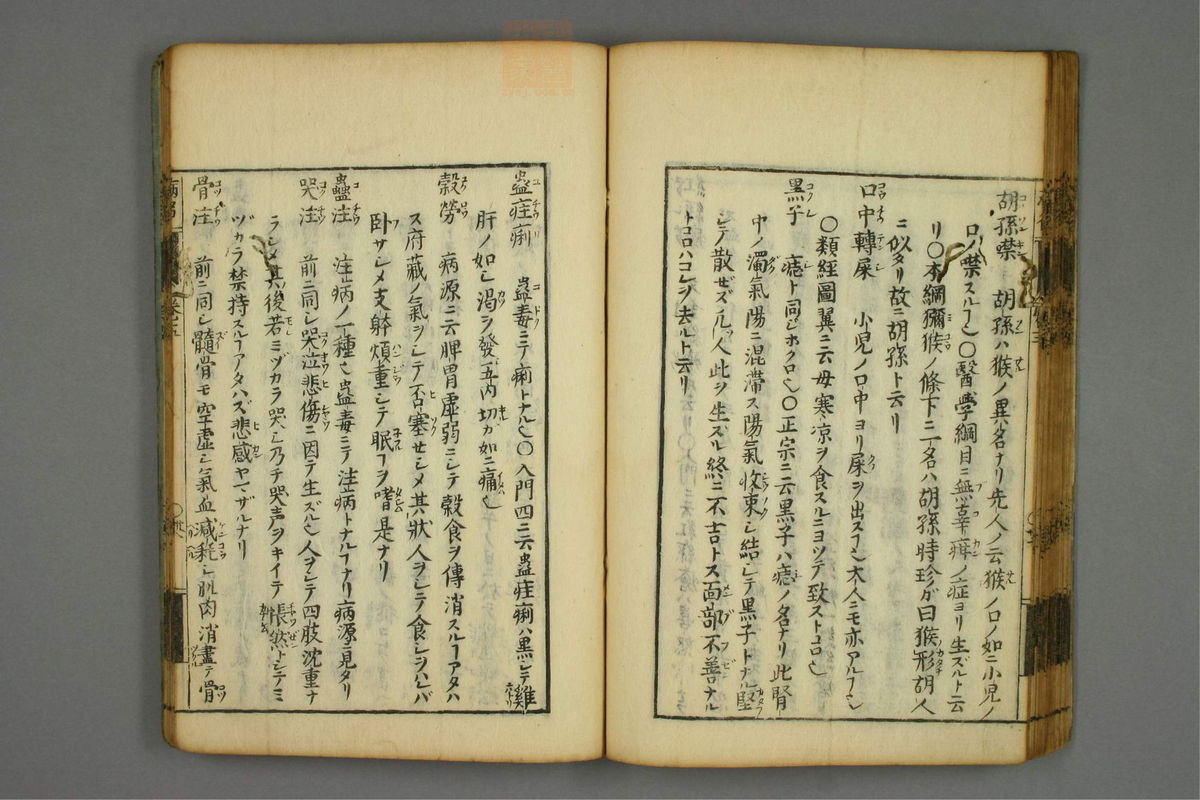 胡孫噤 胡孫ハ猴ノ異名ナリ先人ノ云猴ノ口ノ如ニ小児ノ
口ノ噤スルヿ也〇醫學綱目ニ無辜疳ノ症ヨリ生ズルト云
リ〇本綱獼猴ノ條下ニ一名ハ胡孫時珍ガ曰猴形胡人
ニ似タリ故ニ胡孫ト云リ
口中轉屎 小児ノ口中ヨリ屎ヲ出スヿ也大人ニモ亦アルヿ也
〇類經圖翼ニ云母寒凉ヲ食スルニヨツテ致ストコロ也
黒子 痣ト同じホクロ也〇正宗ニ云黒子ハ痣ノ名ナリ此腎
中ノ濁氣陽ニ混滞ス陽氣收束シ結シテ黒子トナル堅
シテ散ゼズ凡人此ヲ生ズル終ニ不吉トス面部不善ナル
トコロハコレヲ去ルト云リ
蠱疰痢 蠱毒ニテ痢トナル也〇入門四ニ云蠱疰痢ハ黒シテ雞
肝ノ如シ渴ヲ發シ五内切ガ如ニ痛也
穀勞 病源ニ云脾胃虚弱ニシテ穀食ヲ傳消スルヿアタハ
ス府藏ノ氣ヲシテ否塞セシメ其狀人ヲシテ食シヲハレバ
卧サシメ支躰煩重シテ眠ヿヲ嗜是ナリ
蠱注 注病ノ一種也蠱毒ニテ注病トナルヿナリ病源ニ見タリ
哭注 前ニ同シ哭泣悲傷ニ因テ生ズル也人ヲシテ四肢沈重ナ
ラシメ其後若ミヅカラ哭シ乃チ哭声ヲキイテ悵然トシテミ
ヅカラ禁持スルヿアタハズ悲感ヤマザルナリ
骨注 前ニ同シ髓骨モ空虚シ氣血減耗シ肌肉消盡テ骨